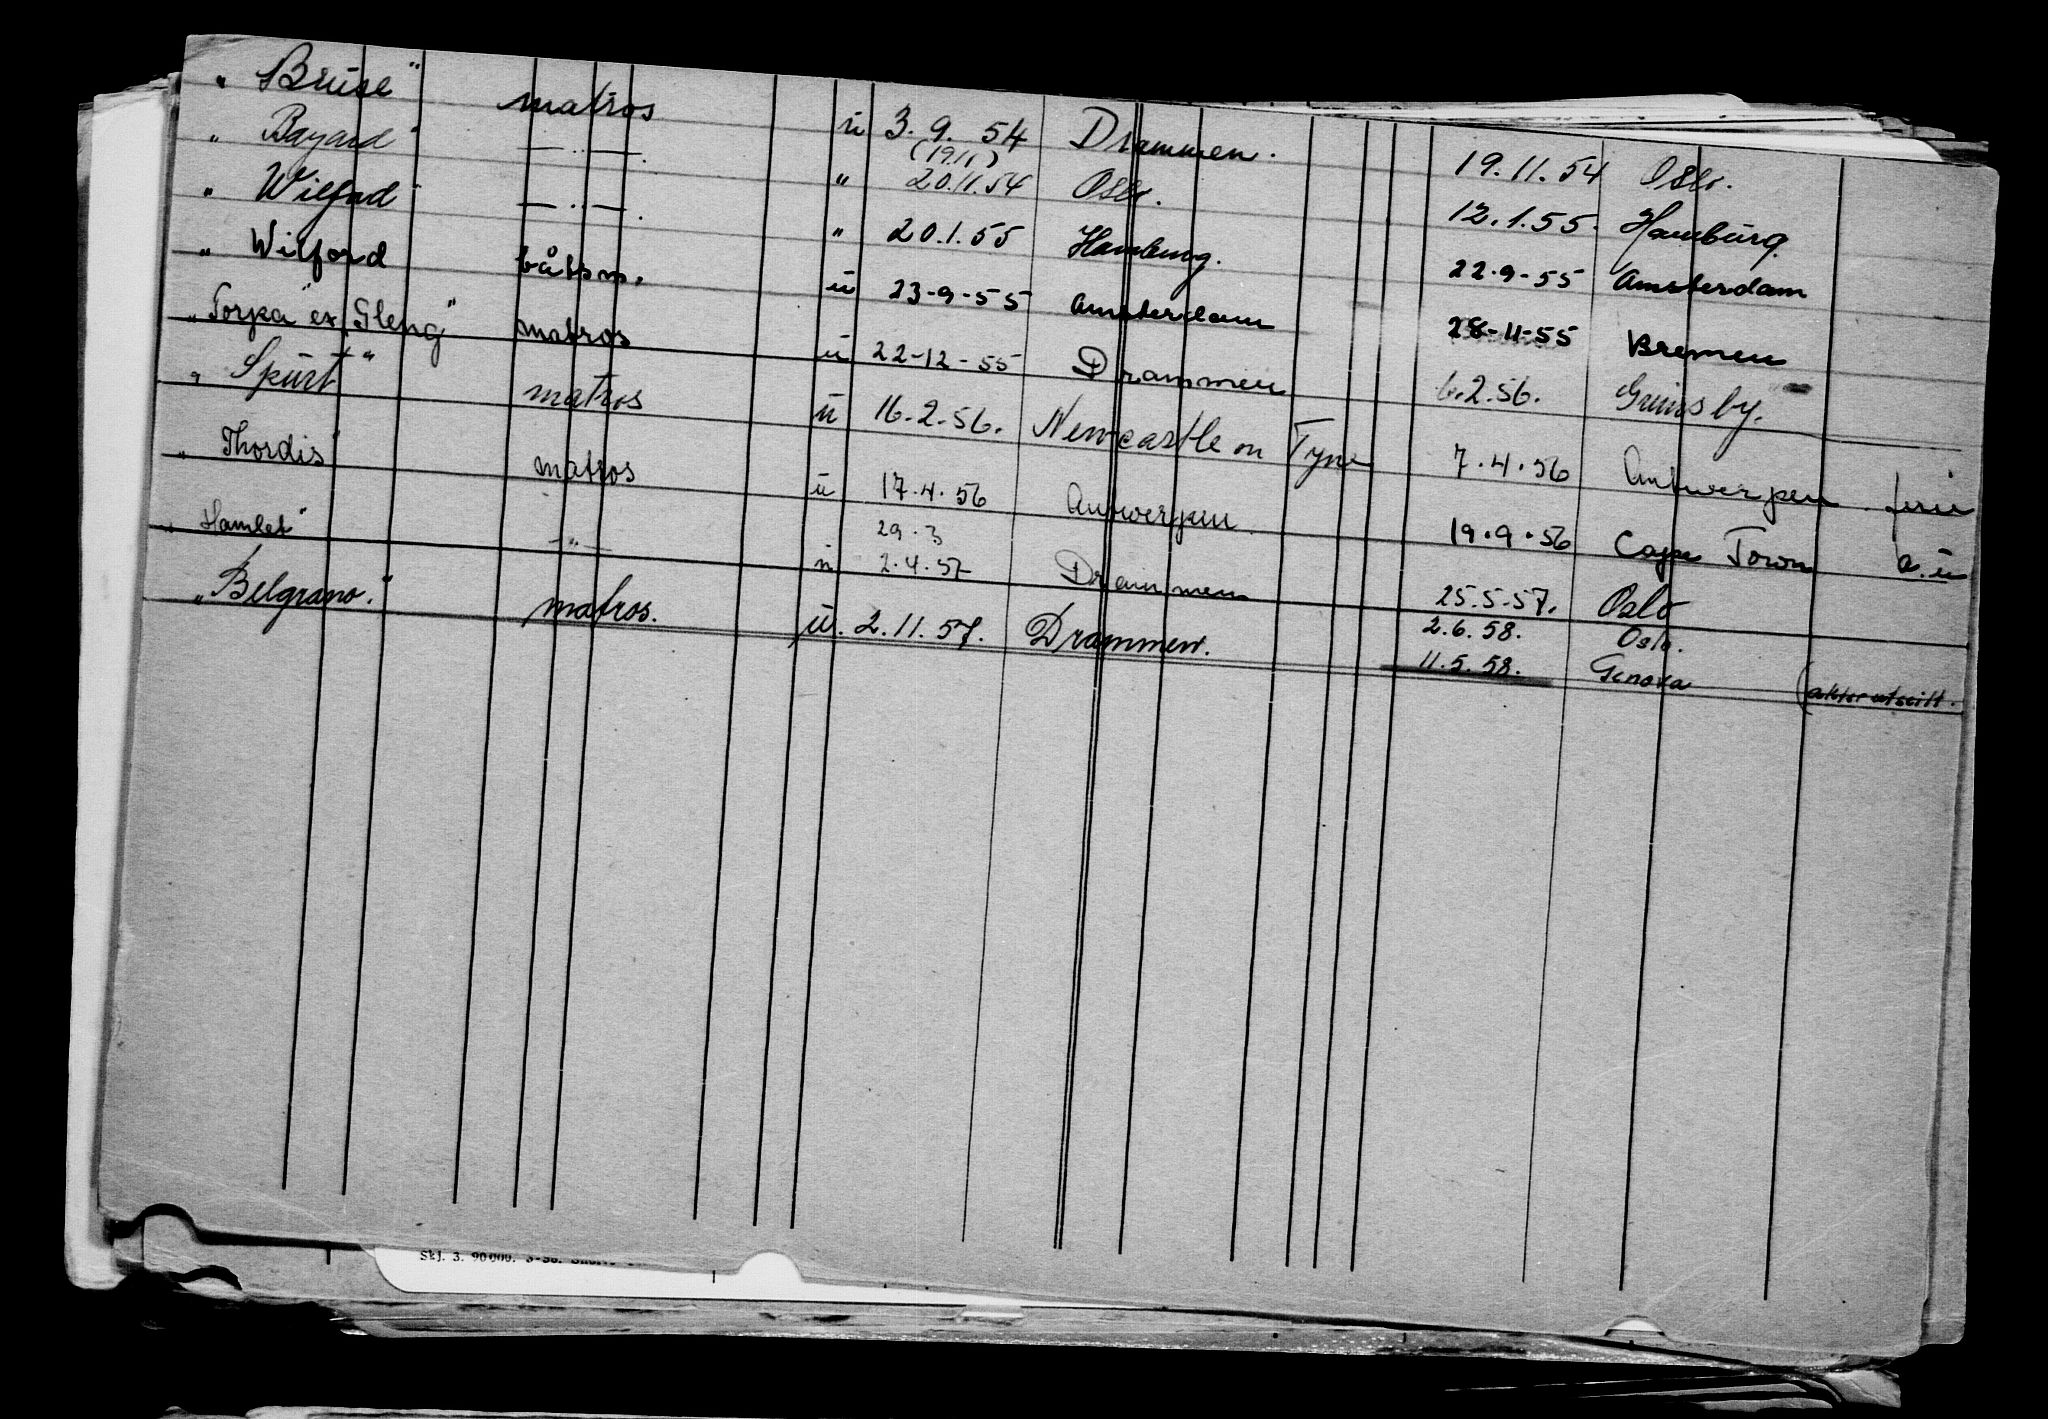 " Bruse" matros u 3. 9. 54 Drammen. 19. 11. 54 Oslo.
" Bayard" —"—. " (19.11) 20.11.54 Oslo. 12. 1. 55. Hamburg.
" Wilford" —"—. " 20.1.55 Hamburg. 22-9-55 Amsterdam
" Wilford båtsm. u 23-9-55 Amsterdam 28-11-55 Bremen
"Torfa" ex "Gleng" matros u 22-12-55 Drammen 6.2.56. Grimsby.
" Spurt" matros u 16-2-56. Newcastle on Tyne 7.4.56 Antwerpen ferie
" Thordis" matros u 17.4.56 Antwerpen 19.9.56 Cape Town a.u
" Hamlet" —"— u 29.3 2.4.57 Drammen 25.5.57. Oslo
"Belgrano." matros. u. 2.11.57. Drammen. 2.6.58. Oslo.
11.5.58. Genova
Skj. 3. 90.000.